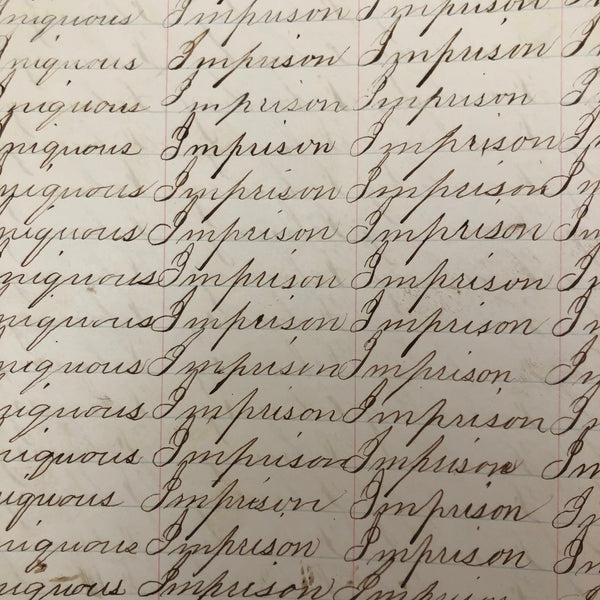 niquous Imprison Imprison
niquous Imprison Imprison
niquous Imprison Imprison
niquous Imprison Imprison
niquous Imprison Imprison
niquous Imprison Imprison
niquous Imprison Imprison
niquous Imprison Imprison
niquous Imprison Imprison
niquous Imprison Imprison
niquous Imprison Imprison
iquous Imprison Imprison
niquous Imprison Imprison
niquous Imprison Imprison